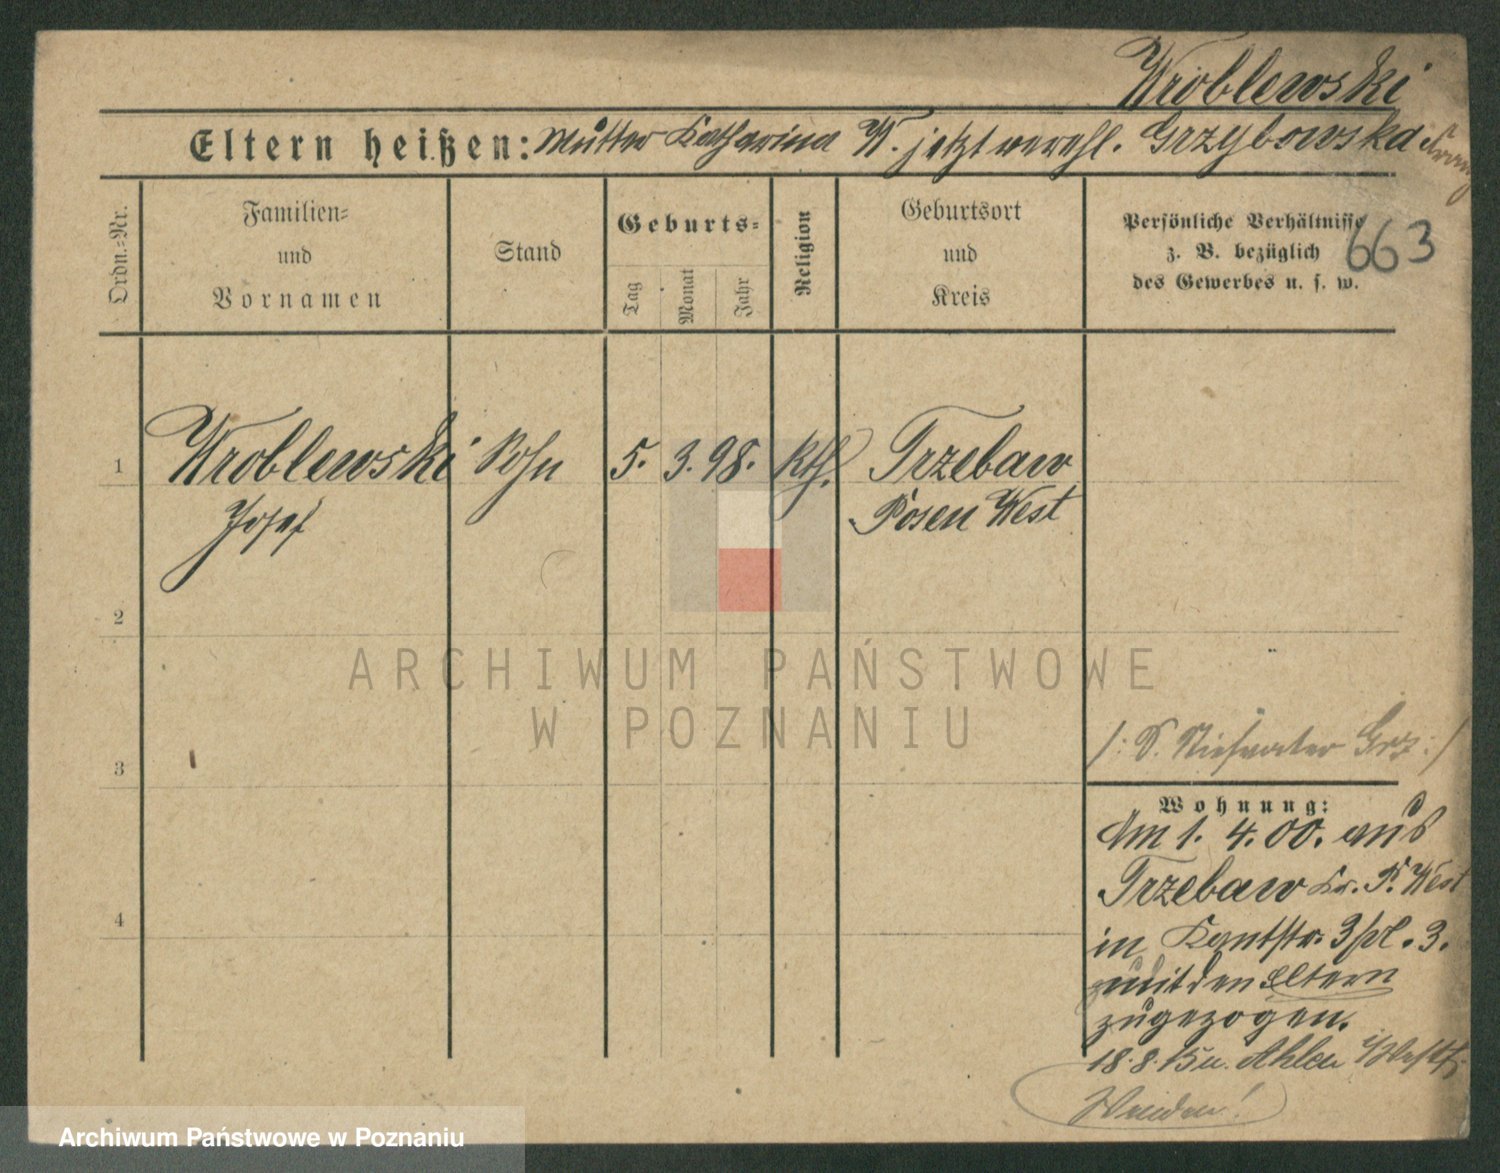 Wroblewski
Eltern heißen: Mutter Katharina W. jetzt verehl. Grzybowska
Ordn.=Nr.
Familien=
und
Vornamen
Stand
Geburts=
Tag
Monat
Jahr
Religion
Geburtsort
und
Kreis
Persönliche Verhältnisse
z. B. bezüglich
des Gewerbes u. s. w.
663
1
Wroblewski Sohn 5. 3. 98. kth. Trzebaw
Josef
Posen West
2
ARCHIWUM PAŃSTWOWE
W POZNANIU
/: S. Stiefvater Grz :/
3
Wohnung:
Am 1. 4. 00. aus
Trzebaw Kr. P. West
in Kantstr. 3 pt. 3.
mit den Eltern
zugezogen.
4
18. 8. 15 n. Ahlen i/Westf.
Wenden!
Archiwum Państwowe w Poznaniu